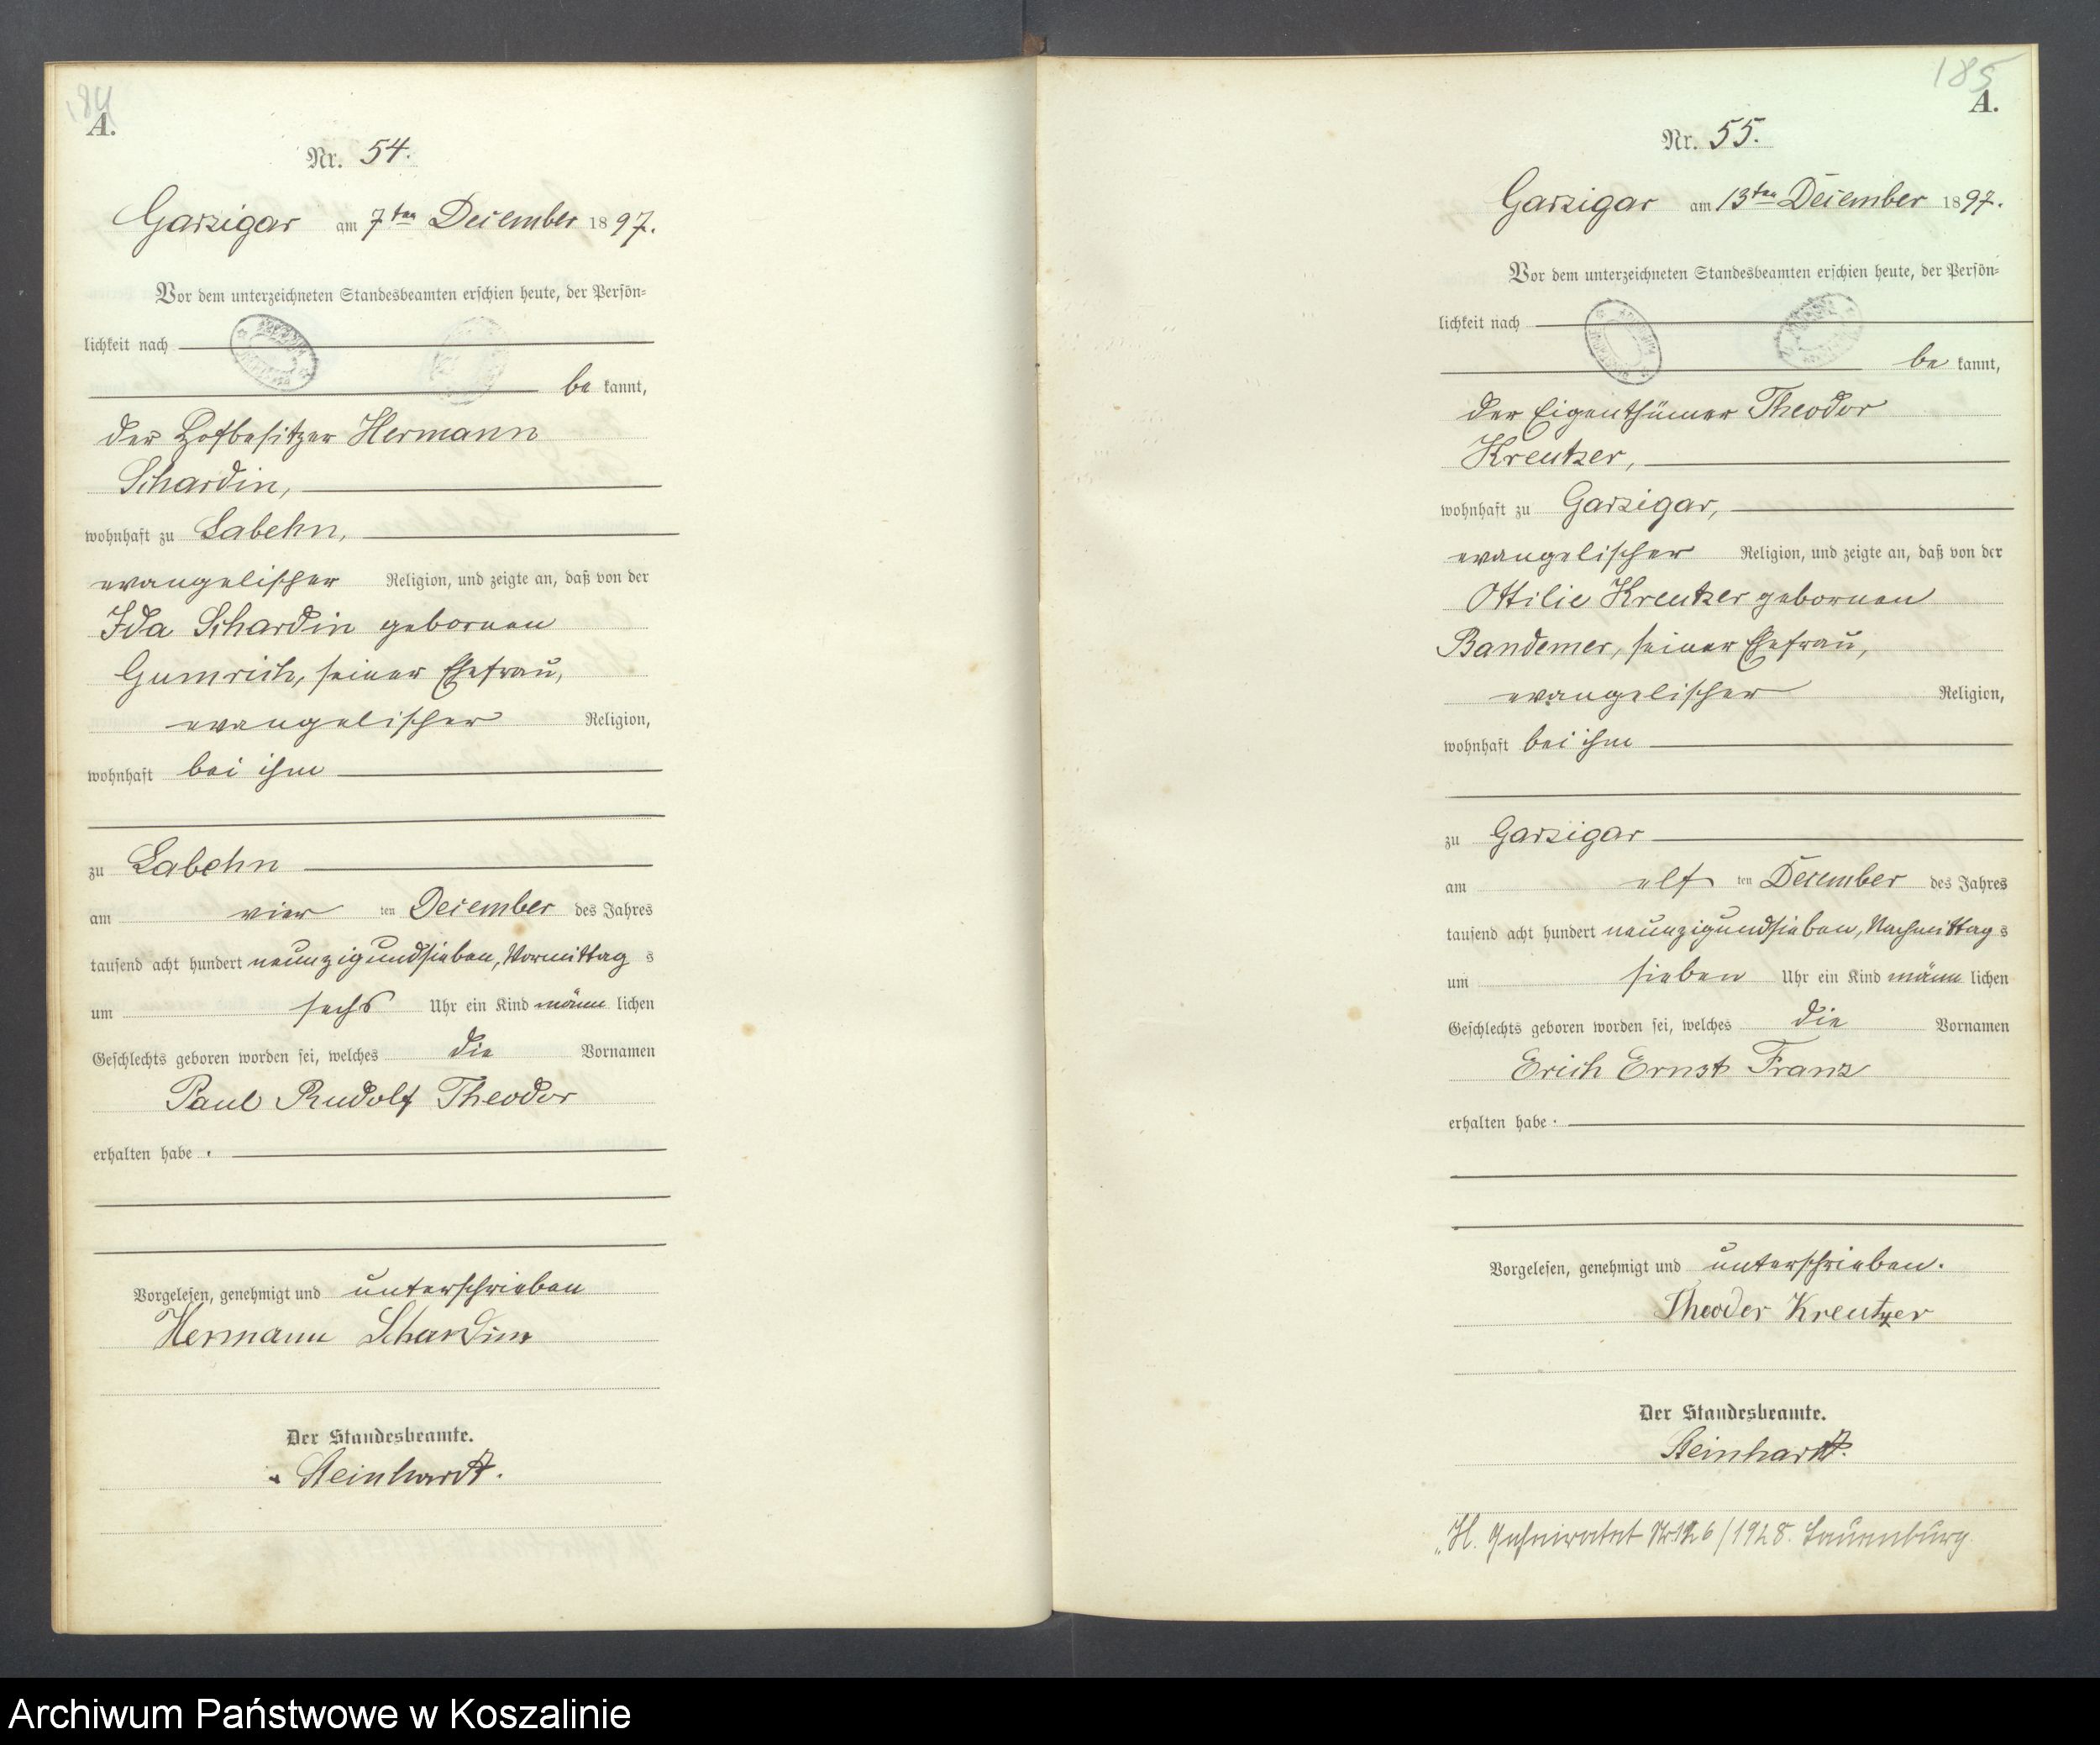 184
A.
Nr. 54.
Garzigar am 7ten December 1897.
Vor dem unterzeichneten Standesbeamten erschien heute, der Persön-
lichkeit nach
be kannt,
der Hofbesitzer Hermann
Schardin,
wohnhaft zu Labehn,
evangelischer Religion, und zeigte an, daß von der
Ida Schardin gebornen
Gumrich, seiner Ehefrau,
evangelischer Religion,
wohnhaft bei ihm
zu Labehn
am vier ten December des Jahres
tausend acht hundert neunzigundsieben, Vormittag s
um sechs Uhr ein Kind männ lichen
Geschlechts geboren worden sei, welches die Vornamen
Paul Rudolf Theodor
erhalten habe .
Vorgelesen, genehmigt und unterschrieben
Hermann Schardin
Der Standesbeamte.
Steinhardt.
185
A.
Nr. 55.
Garzigar am 13ten December 1897.
Vor dem unterzeichneten Standesbeamten erschien heute, der Persön-
lichkeit nach
be kannt,
der Eigenthümer Theodor
Kreutzer,
wohnhaft zu Garzigar,
evangelischer Religion, und zeigte an, daß von der
Ottilie Kreutzer gebornen
Bandemer, seiner Ehefrau,
evangelischer Religion,
wohnhaft bei ihm
zu Garzigar
am elf ten December des Jahres
tausend acht hundert neunzigundsieben, Nachmittag s
um sieben Uhr ein Kind männ lichen
Geschlechts geboren worden sei, welches die Vornamen
Erich Ernst Franz
erhalten habe .
Vorgelesen, genehmigt und unterschrieben.
Theodor Kreutzer
Der Standesbeamte.
Steinhardt.
H. Geheiratet Nr. 126/1928. Lauenburg
Archiwum Państwowe w Koszalinie